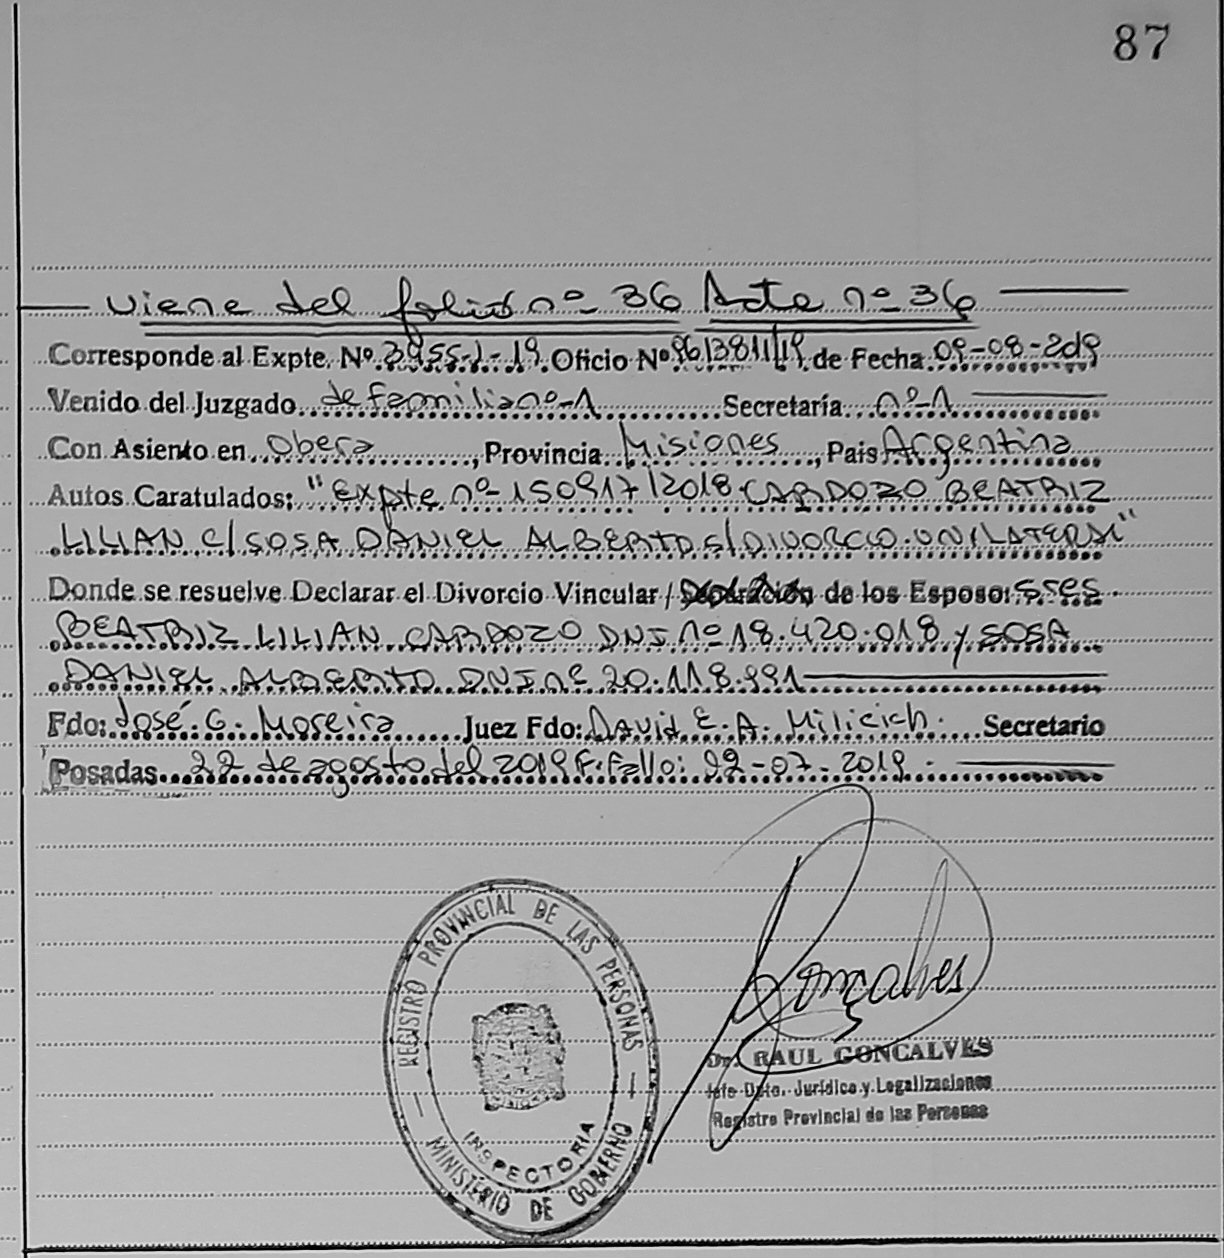 87
Viene del folio nº 36 Acta nº 36
Corresponde al Expte. Nº 3955-J-19 Oficio Nº 9613811/19 de Fecha 09-08-2019
Venido del Juzgado de familia nº-1 Secretaría nº-1
Con Asiento en Obera, Provincia Misiones, Pais Argentina
Autos Caratulados: "Expte nº 150917/2018 CARDOZO BEATRIZ
LILIAN C/ SOSA DANIEL ALBERTO S/ DIVORCIO UNILATERAL"
Donde se resuelve Declarar el Divorcio Vincular / Separación de los Esposos: Sres
BEATRIZ LILIAN CARDOZO DNI nº 18.420.018 y SOSA
DANIEL ALBERTO DNI nº 20.118.991
Fdo: José G. Moreira Juez Fdo: David E. A. Milicich. Secretario
Posadas 22 de agosto del 2019 F. Fallo: -07-2019.
REGISTRO PROVINCIAL DE LAS PERSONAS
INSPECTORIA
MINISTERIO DE GOBIERNO
Goncalves
Dr. RAUL GONCALVES
Jefe Dpto. Jurídico y Legalizaciones
Registro Provincial de las Personas